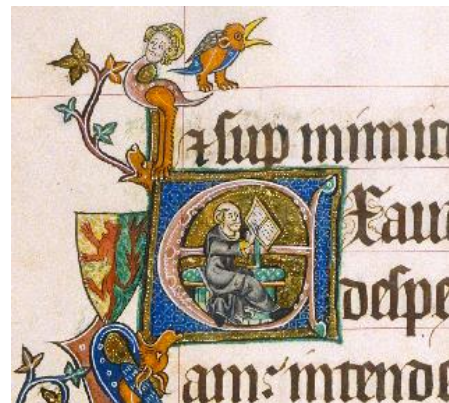 ⁊ sup inimic
EXau
despe
am: intende